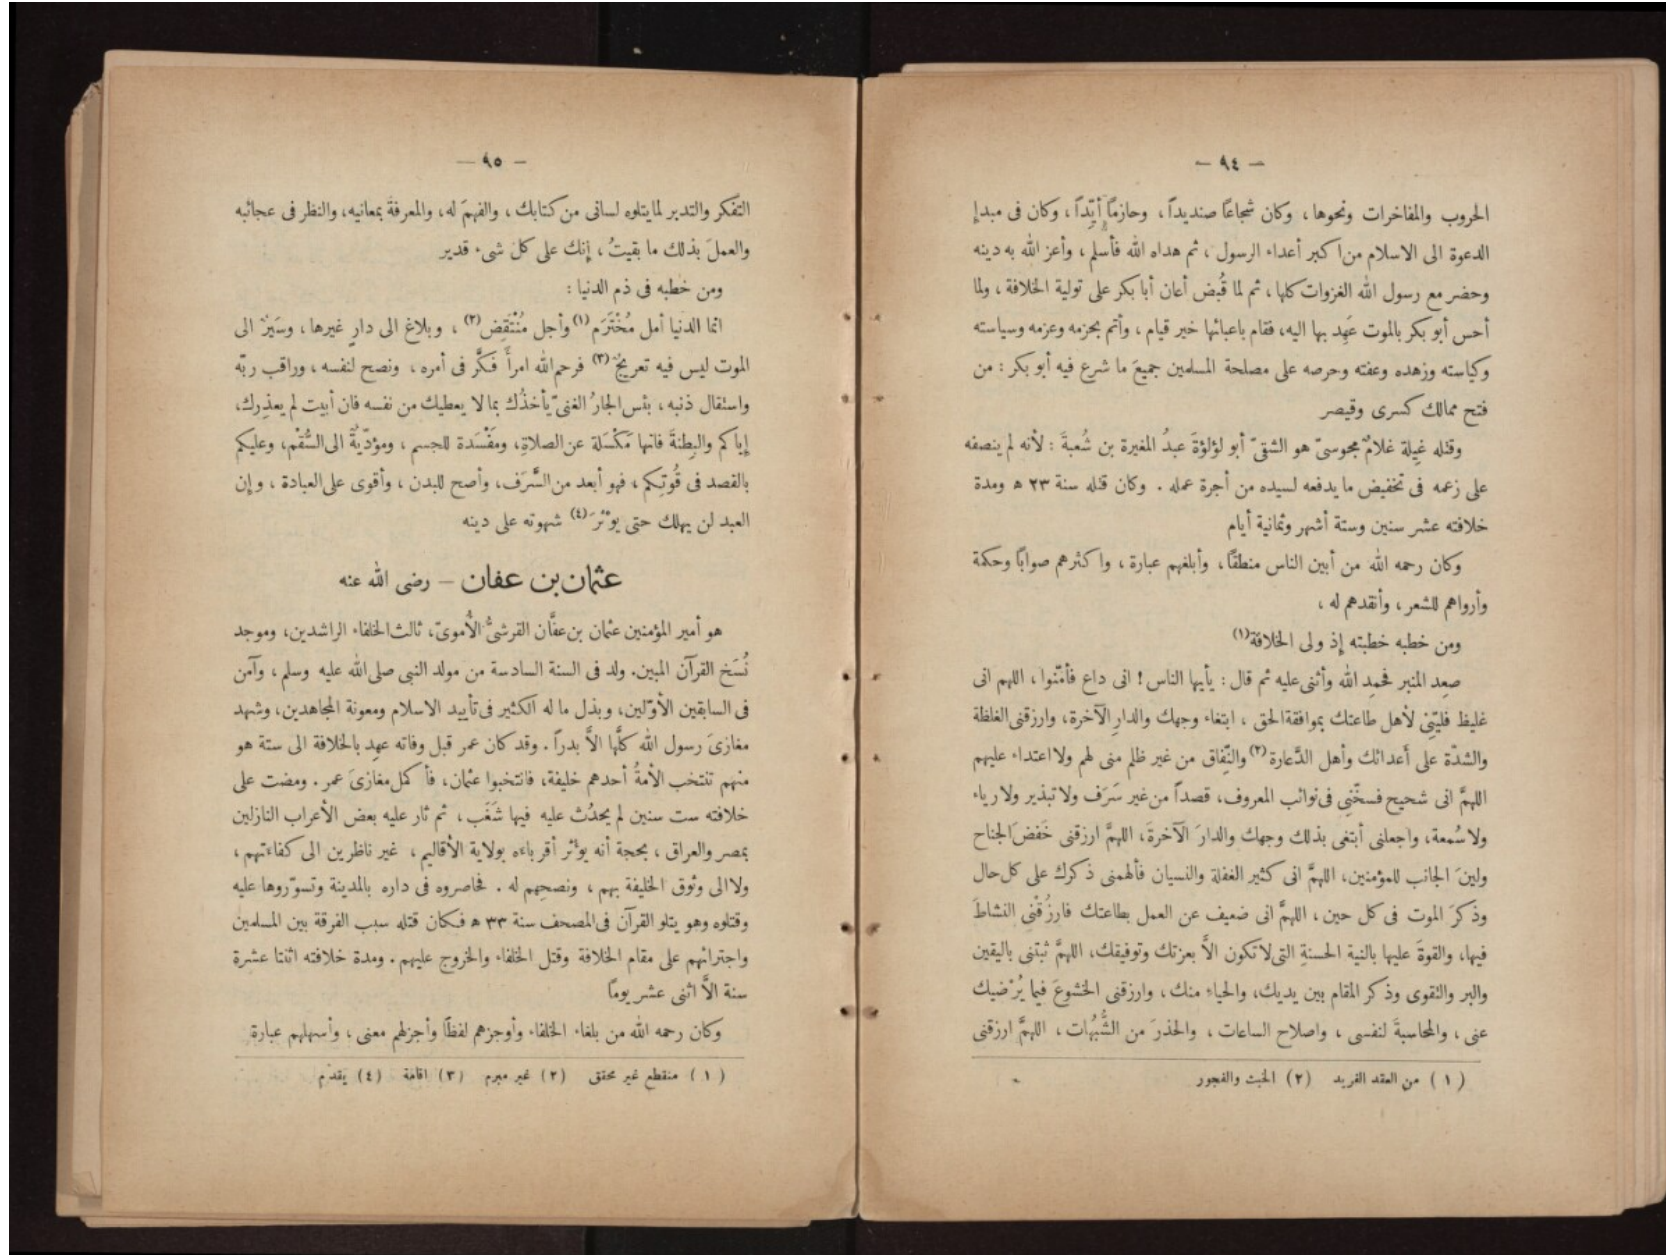 — ٩٤ —
الحروب والمفاخرات ونحوها ، وكان شجاعًا صنديداً ، وحازمًا أيِّداً ، وكان فى مبدإ
الدعوة الى الاسلام من أكبر أعداء الرسول ، ثم هداه الله فأسلم ، وأعز الله به دينه
وحضر مع رسول الله الغزوات كلها ، ثم لما قُبض أعان أبا بكر على تولية الخلافة ، ولما
أحس أبو بكر بالموت عَهِد بها اليه، فقام باعبائها خير قيام ، وأتم بحزمه وعزمه وسياسته
وكياسته وزهده وعفته وحرصه على مصلحة المسلمين جميعَ ما شرع فيه أبو بكر : من
فتح ممالك كسرى وقيصر
وقتله غِيلة غلامٌ مجوسىّ هو الشقىّ أبو لؤلؤةَ عبدُ المغيرة بن شُعبةَ : لأنه لم ينصفه
على زعمه فى تخفيض ما يدفعه لسيده من أجرة عمله . وكان قتله سنة ٢٣ ھ ومدة
خلافته عشر سنين وستة أشهر وثمانية أيام
وكان رحمه الله من أبين الناس منطقًا ، وأبلغهم عبارة ، واكثرهم صوابًا وحكمة
وأرواهم للشعر ، وأنقدهم له ،
ومن خطبه خطبته إذ ولى الخلافة(١)
صعِد المنبر فحمدِ الله وأثنى عليه ثم قال : يأيها الناس ! انى داع فأمّنوا ، اللهم انى
غليظ فليّنِّى لأهل طاعتك بموافقة الحق ، ابتغاء وجهك والدارِ الآخرة، وارزقنى الغلظة
والشدّة على أعدائك وأهل الدَّعارة(٢) والنِّفاق من غير ظلم منى لهم ولا اعتداء عليهم
اللهمَّ انى شحيح فسخّنِى فى نوائب المعروف، قصداً من غير سَرَف ولا تبذير ولا رياء
ولا سُمعة، واجعلنى أبتغى بذلك وجهك والدارَ الآخرةَ، اللهمَّ ارزقنى خَفضَ الجناح
ولينَ الجانب للمؤمنين، اللهمَّ انى كثير الغفلة والنسيان فألهمنى ذكرك على كل حال
وذكرَ الموت فى كل حين ، اللهمَّ انى ضعيف عن العمل بطاعتك فارزُقْنِى النشاطَ
فيها، والقوةَ عليها بالنية الحسنةِ التى لا تكون الاَّ بعزتك وتوفيقك، اللهمَّ ثبتنى باليقين
والبر والتقوى وذكر المقام بين يديك، والحياءِ منك ، وارزقنى الخشوعَ فيما يُرْضيك
عنى ، والمحاسبةَ لنفسى ، واصلاح الساعات ، والحذرَ من الشُّبُهات ، اللهمَّ ارزقنى
(١) من العقد الفريد (٢) الخبث والفجور
— ٩٥ —
التفكر والتدبر لما يتلوه لسانى من كتابك ، والفهمَ له، والمعرفةَ بمعانيه، والنظر فى عجائبه
والعملَ بذلك ما بقيتُ ، إنك على كل شىء قدير
ومن خطبه فى ذم الدنيا :
انما الدنيا أمل مُخْتَرَم(١) وأجل مُنْتَقِض(٢) ، وبلاغ الى دارٍ غيرها ، وسَيْرٌ الى
الموت ليس فيه تعريجٌ(٣) فرحم الله امرأً فكَّر فى أمره ، ونصح لنفسه ، وراقب ربّه
واستقال ذنبه ، بئس الجارُ الغنىّ يأخذُك بما لا يعطيك من نفسه فان أبيت لم يعذِرك،
إياكم والبِطنةَ فانها مَكْسَلة عن الصلاة، ومَفْسَدة للجسم ، ومؤدّيةٌ الى السُّقْم، وعليكم
بالقصد فى قُوتِكم ، فهو أبعد من السَّرَف، وأصح للبدن ، وأقوى على العبادة ، وإن
العبد لن يهلك حتى يؤثرَ(٤) شهوته على دينه
عثمان بن عفان – رضى الله عنه
هو أمير المؤمنين عثمان بن عفَّان القرشىُّ الأُموىّ، ثالث الخلفاء الراشدين، وموجد
نُسَخ القرآن المبين. ولد فى السنة السادسة من مولد النبى صلى الله عليه وسلم ، وآمن
فى السابقين الأوّلين، وبذل ما له الكثير فى تأييد الاسلام ومعونة المجاهدين، وشهد
مغازىَ رسول الله كلَّها الاَّ بدراً . وقد كان عمر قبل وفاته عهِد بالخلافة الى ستة هو
منهم تنتخب الأمةُ أحدهم خليفة، فانتخبوا عثمان، فأكمل مغازىَ عمر . ومضت على
خلافته ست سنين لم يحدُث عليه فيها شَغَب ، ثم ثار عليه بعض الأعراب النازلين
بمصر والعراق ، بحجة أنه يؤثر أقرباءه بولاية الأقاليم ، غير ناظرين الى كفاءتهم ،
ولا الى وثوق الخليفة بهم ، ونصحِهم له . فحاصروه فى داره بالمدينة وتسوّروها عليه
وقتلوه وهو يتلو القرآن فى المصحف سنة ٣٣ ھ فكان قتله سبب الفرقة بين المسلمين
واجترائهم على مقام الخلافة وقتل الخلفاء والخروج عليهم . ومدة خلافته اثنتا عشرة
سنة الاَّ اثنى عشر يومًا
وكان رحمه الله من بلغاء الخلفاء وأوجزهم لفظًا وأجزلهم معنى ، وأسهلهم عبارة
(١) منقطع غير محقق (٢) غير مبرم (٣) اقامة (٤) يقدّم